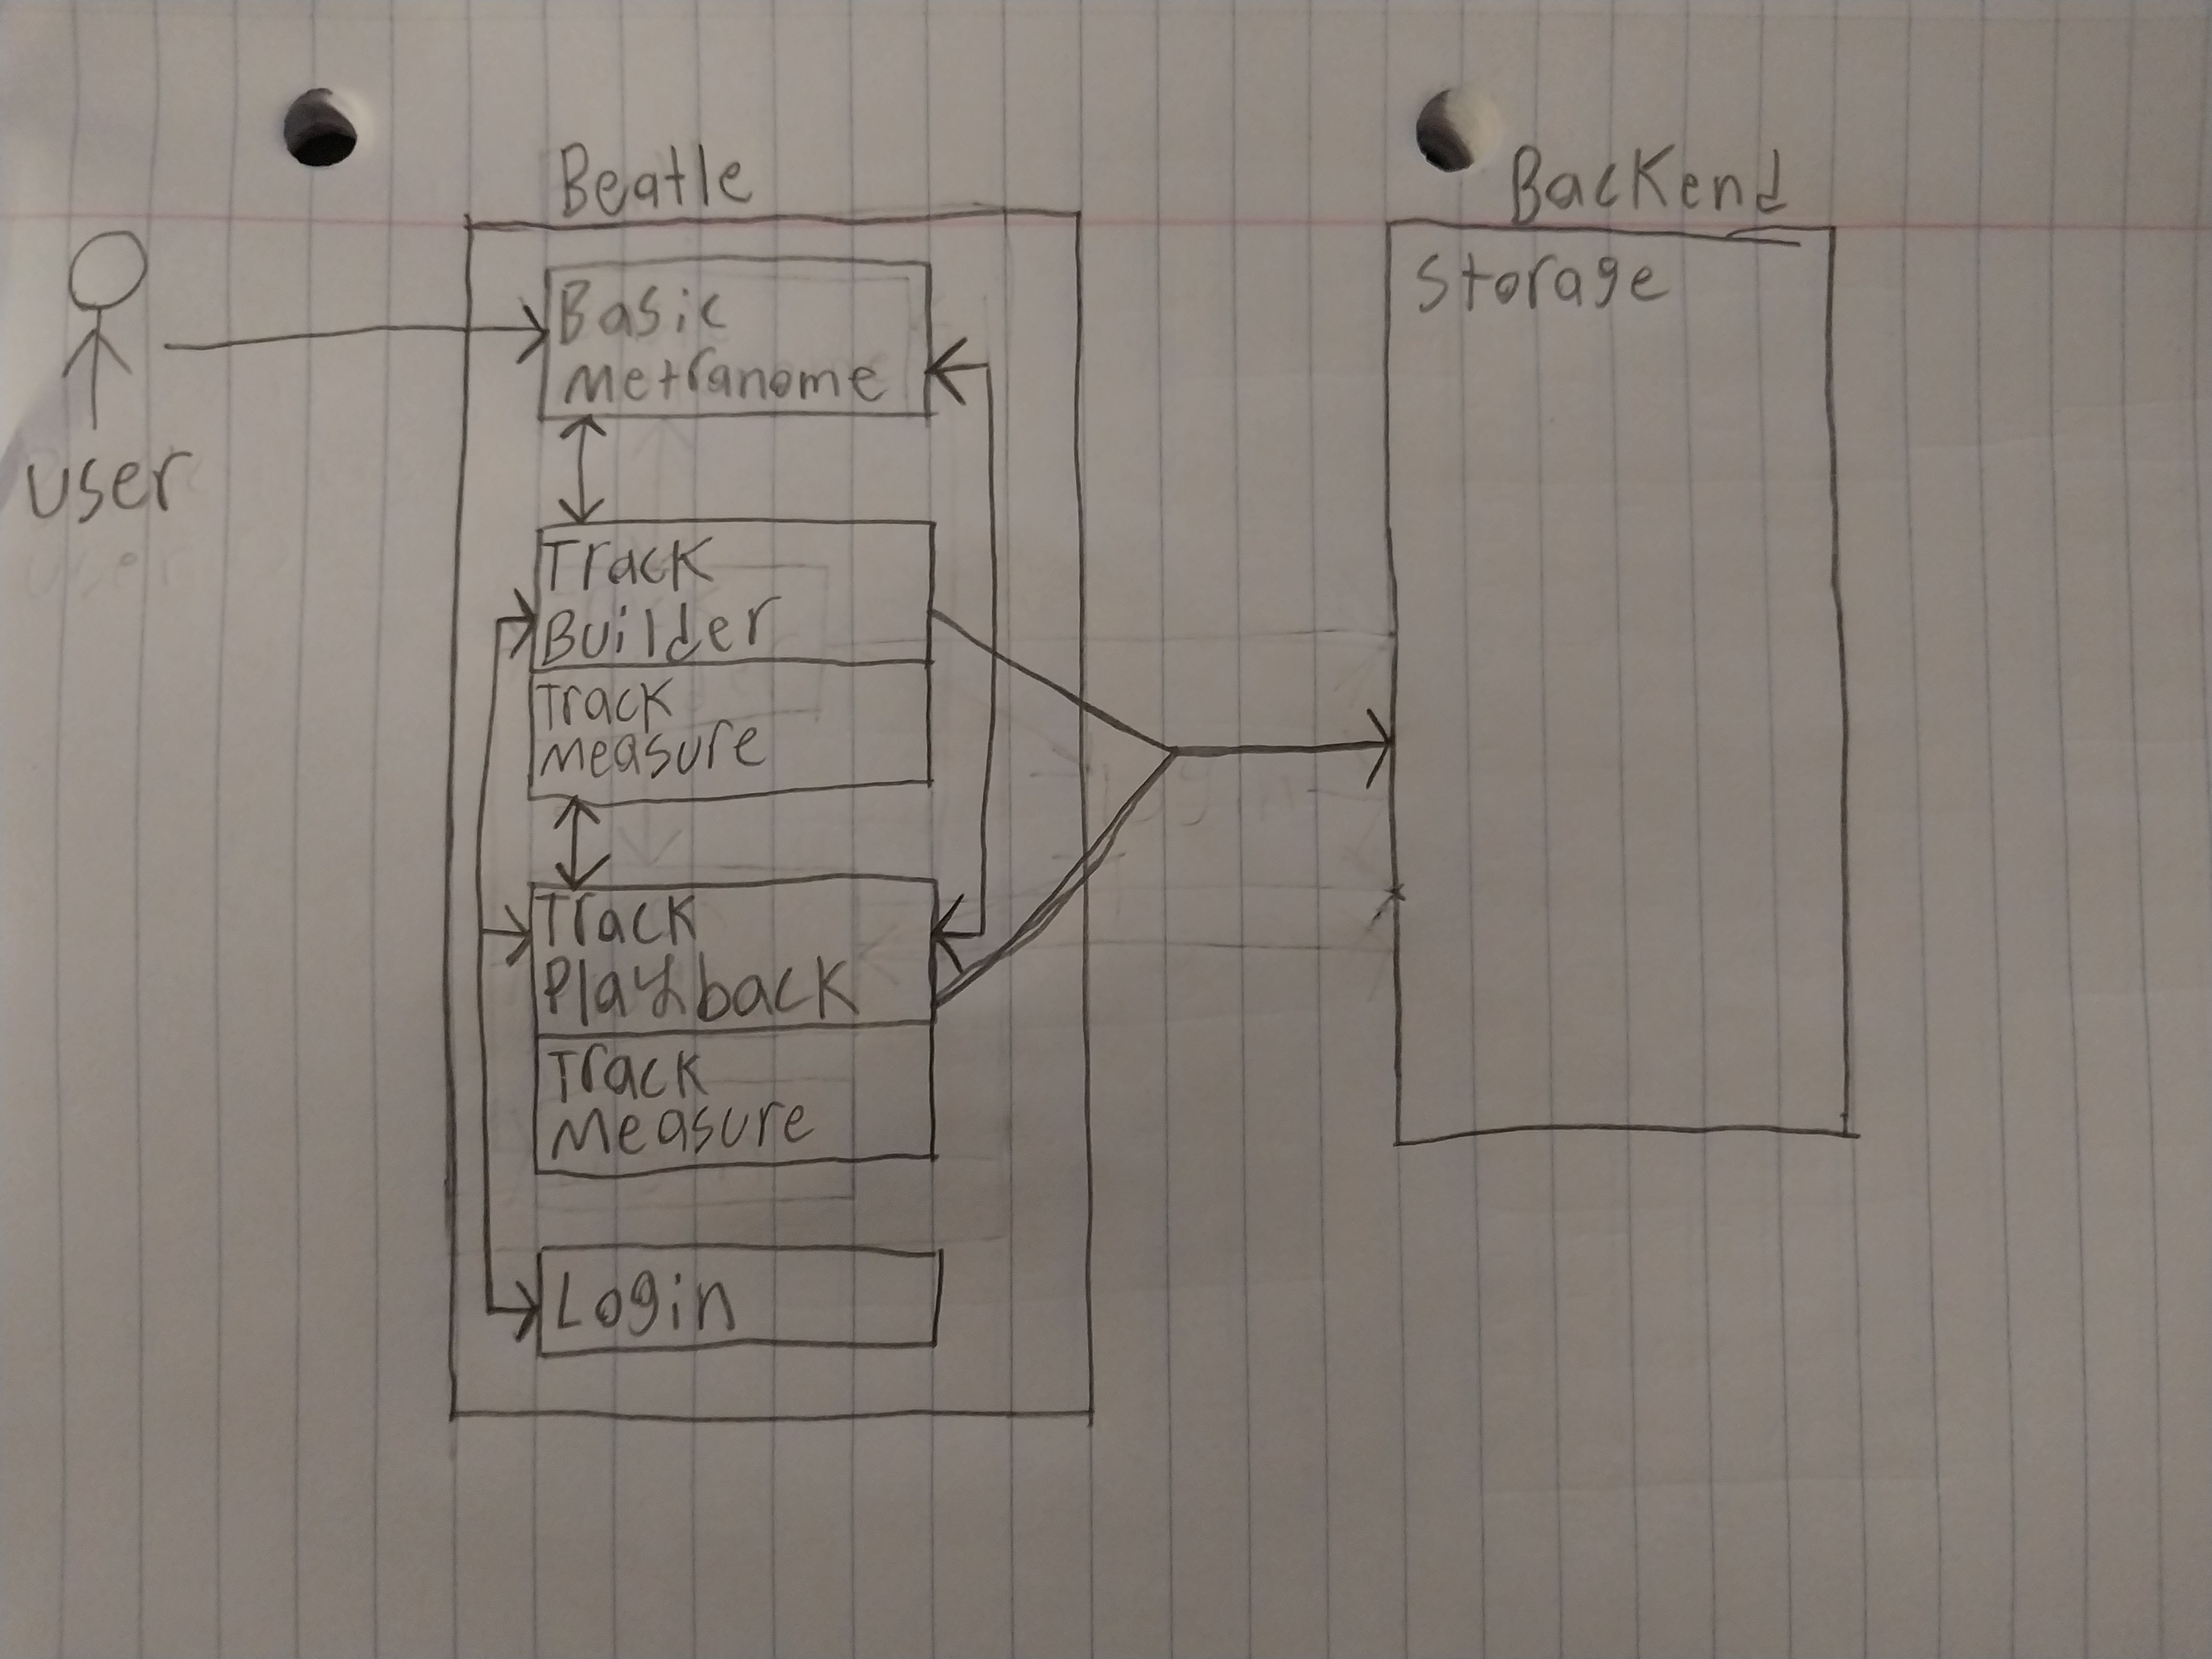 User
Beatle
Basic
metranome
Track
Builder
Track
measure
Track
Playback
Track
measure
Login
Backend
Storage